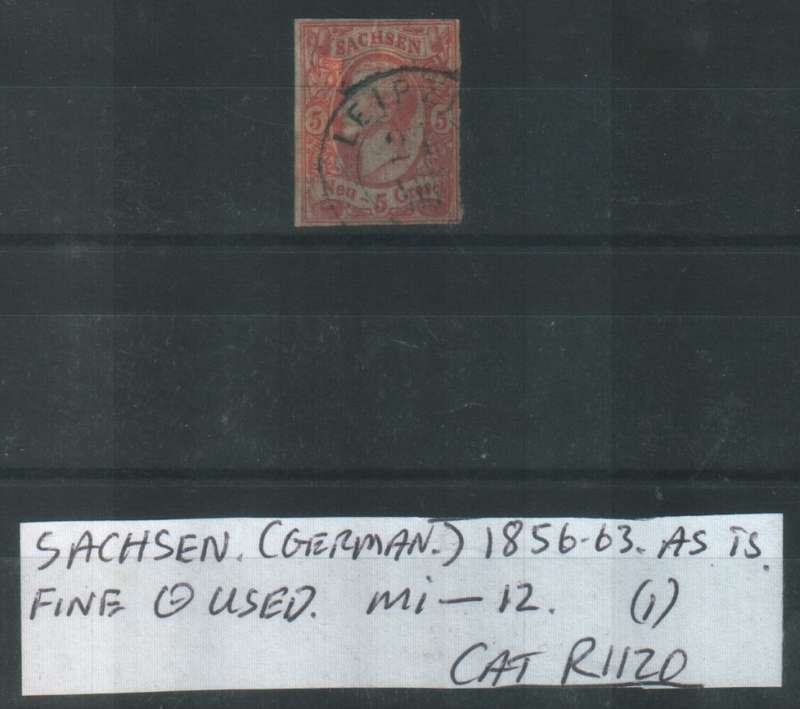 SACHSEN
LEIPZI
5 5
Neu - 5 Grsch
SACHSEN. (GERMAN.) 1856-63. AS IS.
FINE ⊙ USED. mi — 12. (1)
CAT R1120